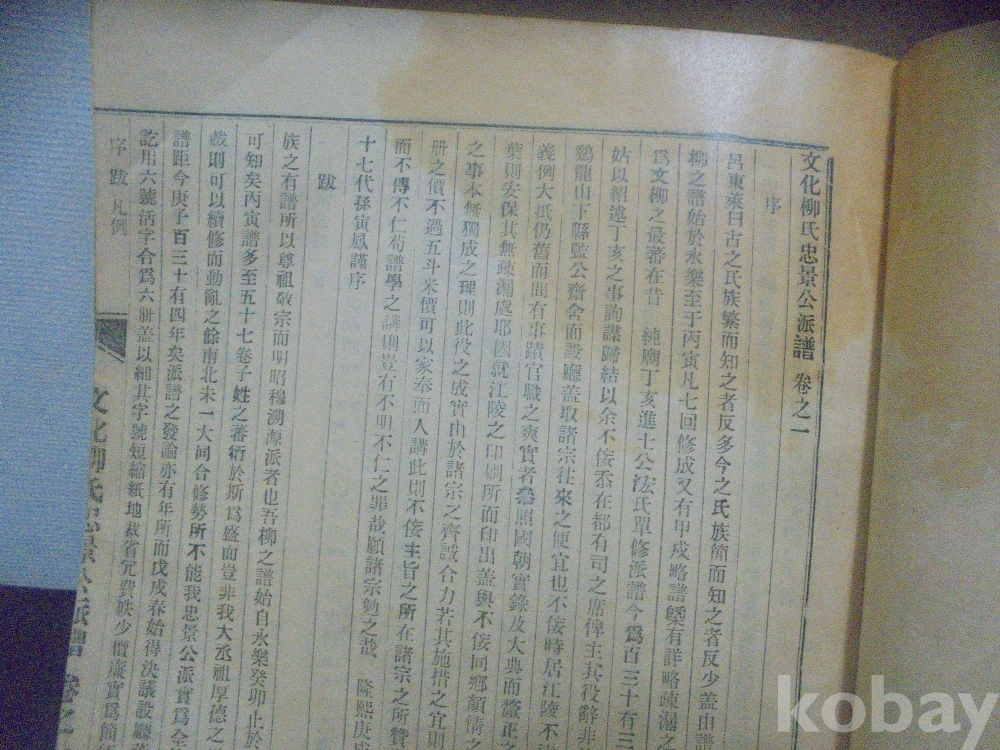 文化柳氏忠景公派譜 卷之一
序
呂東萊曰古之氏族繁而知之者反多今之氏族簡而知之者反少盖由譜
柳之譜始於永樂至于丙寅凡七回修成又有甲戍略譜槩有詳略疎漏之
爲文柳之最蕃在昔 純廟丁亥進士公法氏單修派譜今爲百三十有三
姑以紹述丁亥之事詢謀歸結以余不侫忝在都有司之席俾主其役辭非
鷄龍山下縣監公齋舍而設廳盖取諸宗往來之便宜也不侫時居江陵不
義例大抵仍舊而間有事蹟官職之爽實者悉照國朝實錄及大典而釐正之
葉則安保其無疎漏處耶因就江陵之印刷所而印出盖與不侫同鄕顏情之
之事本無獨成之理則此役之成實由於諸宗之齊誠合力若其施措之宜則
册之價不過五斗米價可以家奉而人講此則不侫主旨之所在諸宗之所贊
而不傳不仁苟譜學之講則豈有不明不仁之罪哉願諸宗勉之哉 隆熙庚戍
十七代孫寅鳳謹序
跋
族之有譜所以尊祖敬宗而明昭穆溯源派者也吾柳之譜始自永樂癸卯止於
可知矣丙寅譜多至五十七卷子姓之蕃衍於斯爲盛而豈非我大丞祖厚德之
戱則可以續修而動亂之餘南北未一大同合修勢所不能我忠景公派實爲全
譜距今庚子百三十有四年矣派譜之發論亦有年所而戊戍春始得決議設廳
訖用六號活字合爲六册盖以細其字號短縮紙地裁省冗費帙少價廉實爲簡
序 跋 凡例
文化柳氏忠景公派譜 卷之
kobay